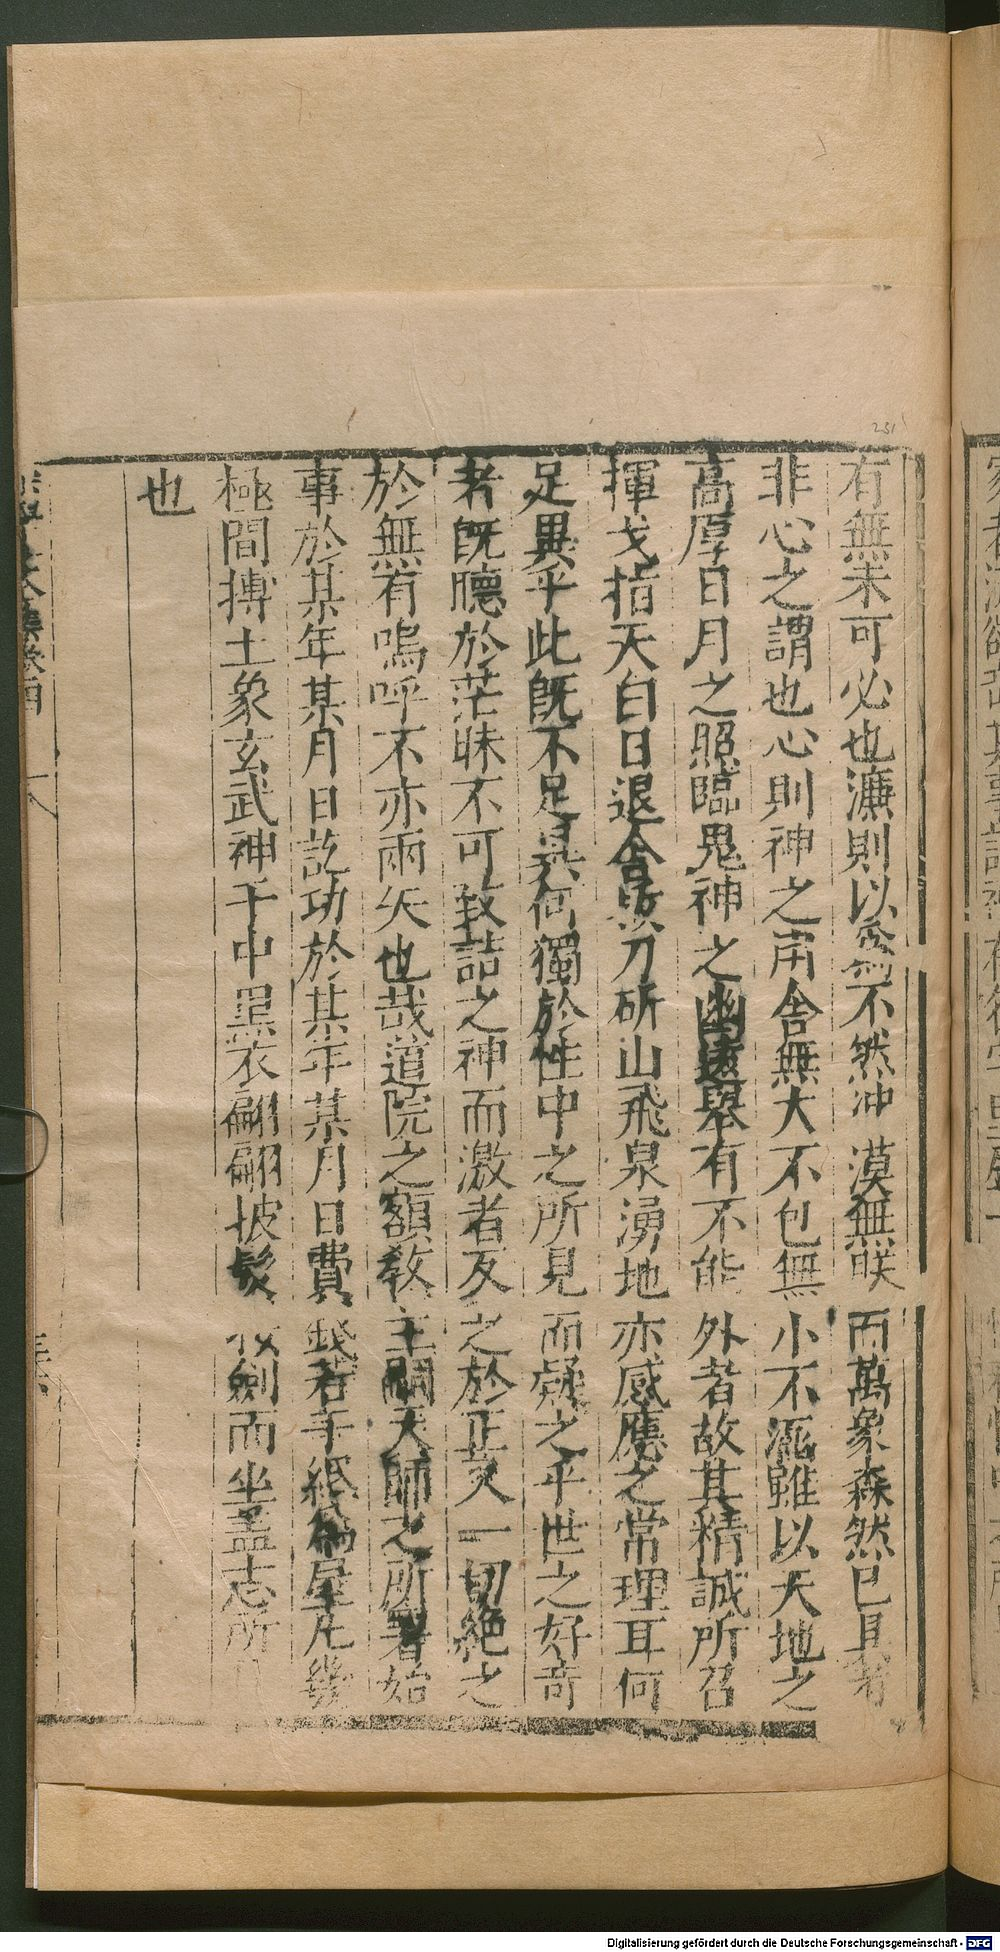 有無未可必也濂則以爲不然沖漠無眹而萬象森然已具者
非心之謂也心則神之所舍無大不包無小不涵雖以天地之
高厚日月之照臨鬼神之幽遠舉有不能外者故其精誠所召
揮戈指天白日退舍刀斫山飛泉湧地亦感應之常理耳何
足異乎此旣不足異何獨於性中之所見而疑之乎世之好奇
者旣聽於茫昧不可致詰之神而激者反之於正又一切絶之
於無有嗚呼不亦兩失也哉道院之額教主嗣天師之所署始
事於某年某月日訖功於某年某月日費錢若干緡爲屋凡幾
極間摶土象玄武神于中黑衣翩翩披髮仗劍而坐盖志所
也
Digitalisierung gefördert durch die Deutsche Forschungsgemeinschaft - DFG